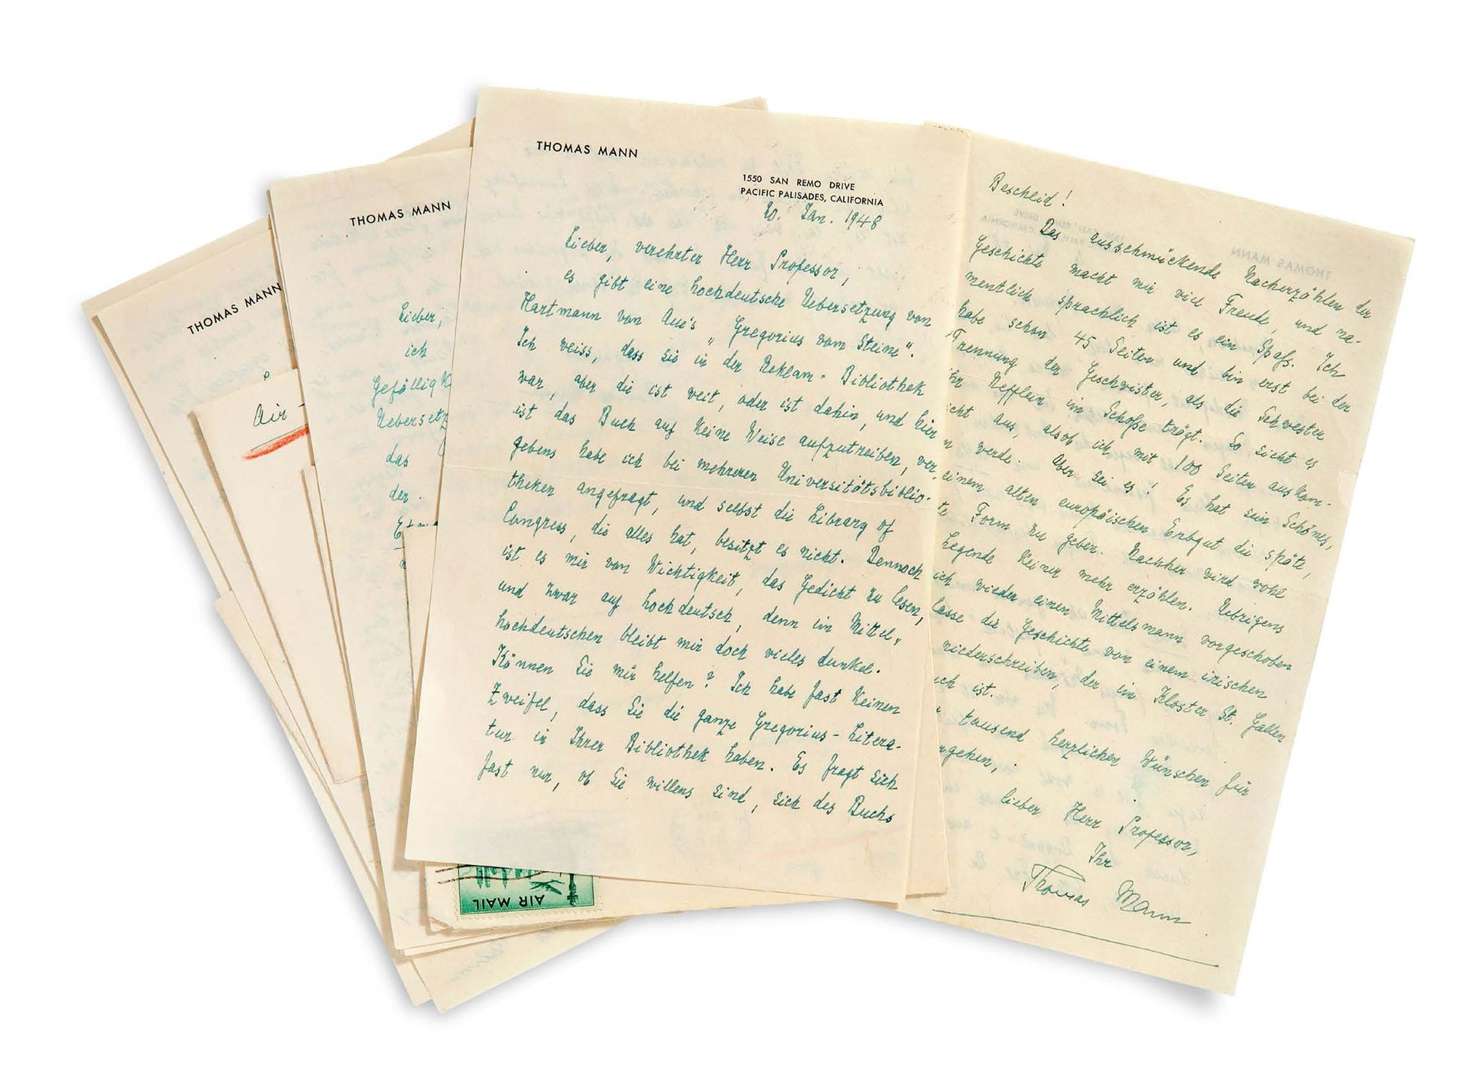 THOMAS MANN
Air
THOMAS MANN
Lieber,
ich
Gefälligk
Uebersetz
das
der
THOMAS MANN
1550 SAN REMO DRIVE
PACIFIC PALISADES, CALIFORNIA
20. Jan. 1948
Lieber, verehrter Herr Professor,
es gibt eine hochdeutsche Uebersetzung von
Hartmann von Aue's „Gregorius vom Steine".
Ich weiss, dass sie in der Reklam-Bibliothek
war, aber die ist weit, oder ist dahin, und hier
ist das Buch auf keine Weise aufzutreiben, ver
gebens habe ich bei mehreren Universitätsbiblio-
theken angefragt, und selbst die Library of
Congress, die alles hat, besitzt es nicht. Dennoch
ist es mir von Wichtigkeit, das Gedicht zu lesen,
und zwar auf hochdeutsch, denn im Mittel-
hochdeutschen bleibt mir doch vieles dunkel.
Können Sie mir helfen? Ich habe fast keinen
Zweifel, dass Sie die ganze Gregorius-Litera-
tur in Ihrer Bibliothek haben. Es fragt sich
fast nur, ob Sie willens sind, sich des Buchs
AIR MAIL
Bescheid!
Das ausschmückende Nacherzählen der
Geschichte macht mir viel Freude, und na-
mentlich sprachlich ist es ein Spaß. Ich
habe schon 45 Seiten und bin erst bei der
Trennung der Geschwister, als die Schwester
Nefflein im Schoße trägt. So sieht es
icht aus, alsob ich mit 100 Seiten auskom-
n werde. Aber sei es! Es hat sein Schönes,
einem alten europäischen Erbgut die späte,
Form zu geben. Nachher wird wohl
Legende keiner mehr erzählen. Uebrigens
ich wieder einen Mittelsmann vorgeschoben
lasse die Geschichte von einem irischen
niederschreiben, der in Kloster St. Gallen
uch ist.
tausend herzlicher Wünschen für
rgehen,
lieber Herr Professor,
Ihr
Thomas Mann
THOMAS MANN